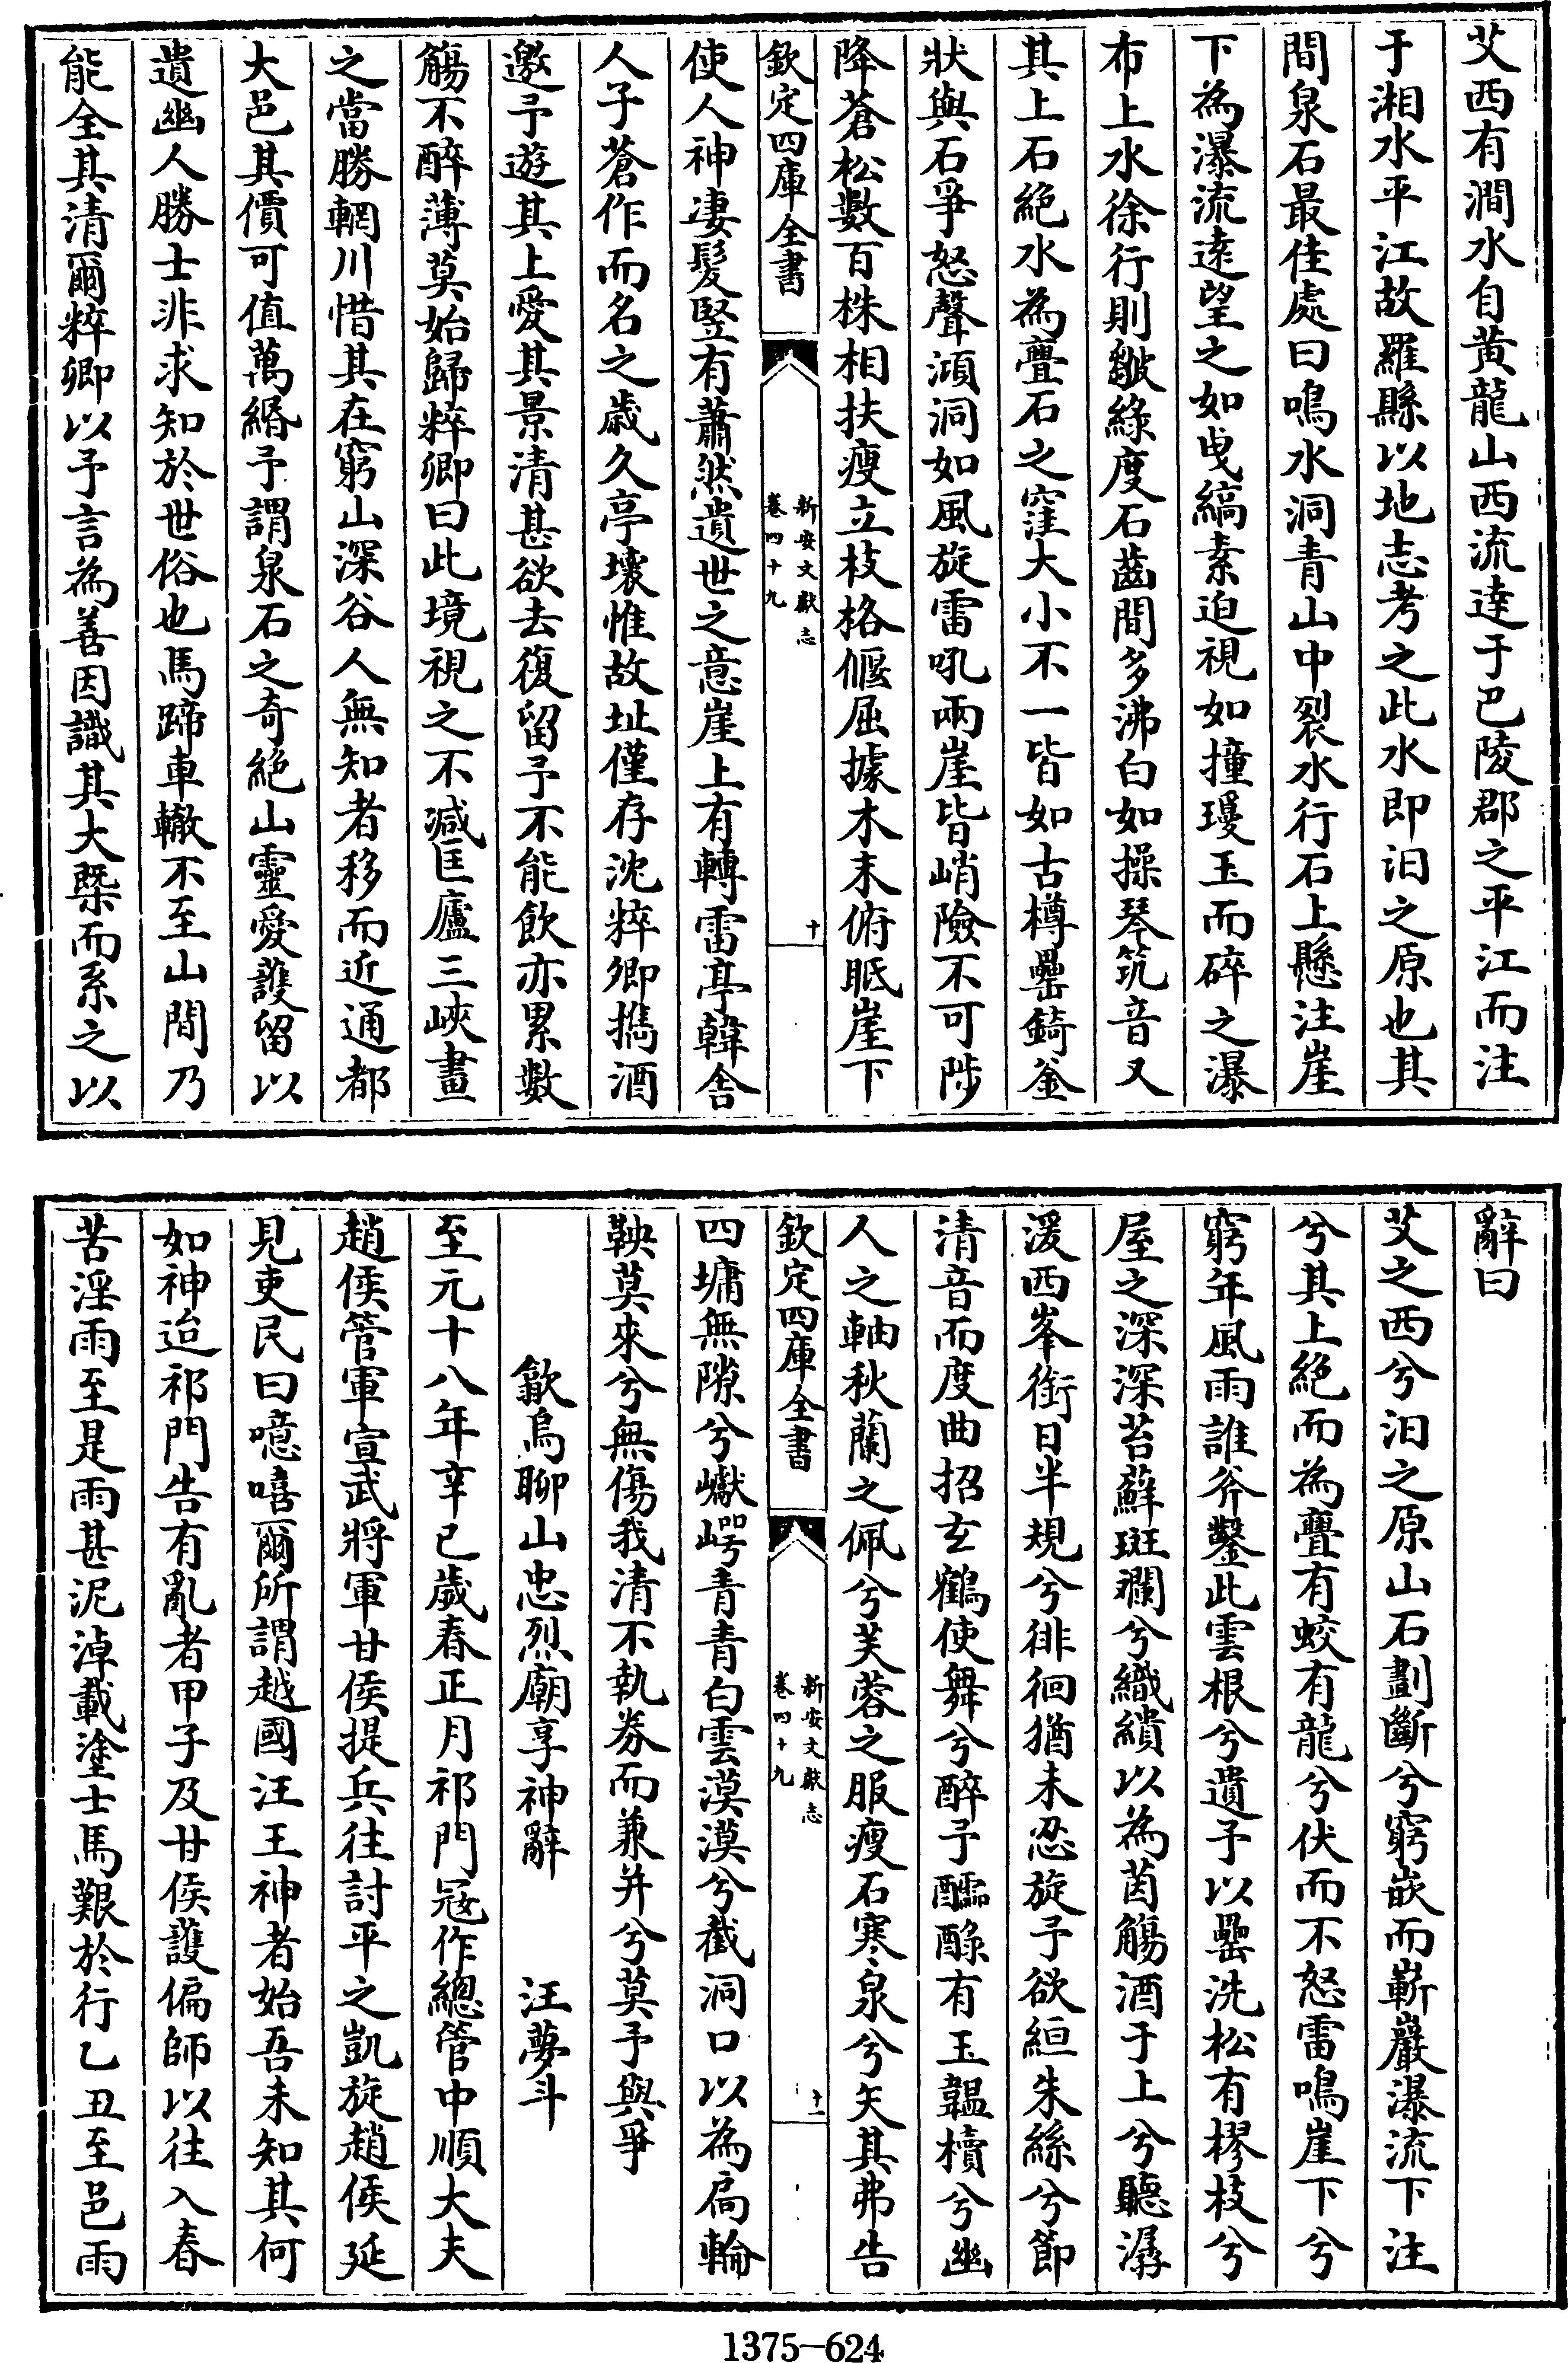 艾西有澗水自黄龍山西流達于巴陵郡之平江而注
于湘水平江故羅縣以地志考之此水即汨之原也其
間泉石最佳處曰鳴水洞青山中裂水行石上懸注崖
下為瀑流逺望之如曳縞素迫視如撞璦玉而碎之瀑
布上水徐行則皺綠度石齒間多沸白如操琴筑音又
其上石絶水為疊石之窪大小不一皆如古樽罍錡釜
狀與石爭怒聲澒洞如風旋雷吼兩崖皆峭險不可陟
降蒼松數百株相扶瘦立枝格偃屈據木末俯眂崖下
欽定四庫全書
新安文獻志
卷四十九
十
使人神凄髪竪有蕭然遺世之意崖上有轉雷亭韓舍
人子蒼作而名之歲久亭壞惟故址僅存沈粹卿攜酒
邀予遊其上愛其景清甚欲去復留予不能飲亦累數
觴不醉薄莫始歸粹卿曰此境視之不减匡廬三峽畫
之當勝輞川惜其在窮山深谷人無知者移而近通都
大邑其價可值萬緡予謂泉石之奇絶山靈愛護留以
遺幽人勝士非求知於世俗也馬蹄車轍不至山間乃
能全其清爾粹卿以予言為善因識其大槩而系之以
辭曰
艾之西兮汨之原山石劃斷兮窮嵌而嶄巖瀑流下注
兮其上絶而為疊有蛟有龍兮伏而不怒雷鳴崖下兮
窮年風雨誰斧鑿此雲根兮遺予以罍洗松有樛枝兮
屋之深深苔蘚斑斕兮織繢以為茵觴酒于上兮聽潺
湲西峯銜日半規兮徘徊猶未忍旋予欲絙朱絲兮節
清音而度曲招玄鶴使舞兮醉予醽醁有玉韞櫝兮幽
人之軸秋蘭之佩兮芙蓉之服瘦石寒泉兮矢其弗告
欽定四庫全書
新安文獻志
卷四十九
十一
四墉無隙兮巘崿青青白雲漠漠兮截洞口以為扃輪
鞅莫來兮無傷我清不執券而兼并兮莫予與爭
歙烏聊山忠烈廟享神辭 汪夢斗
至元十八年辛已歲春正月祁門冦作總管中順大夫
趙侯管軍宣武將軍甘侯提兵往討平之凱旋趙侯延
見吏民曰噫嘻爾所謂越國汪王神者始吾未知其何
如神迨祁門告有亂者甲子及甘侯護偏師以往入春
苦淫雨至是雨甚泥淖載塗士馬艱於行乙丑至邑雨
1375-624